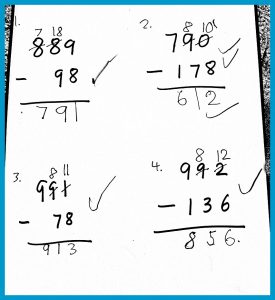 1.
7 18
889
- 98
791
2.
8 10
790
- 178
612
3.
8 11
991
- 78
913
4.
8 12
992
- 136
856.